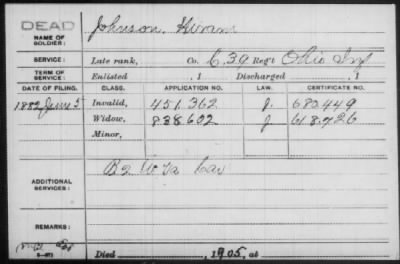 DEAD
NAME OF SOLDIER: Johnson, Hiram
SERVICE: Late rank, Co. C, 39 Reg't Ohio Inf
TERM OF SERVICE: Enlisted , 1 Discharged , 1
DATE OF FILING. CLASS. APPLICATION NO. LAW. CERTIFICATE NO.
1882 June 5 Invalid, 451.362 J. 680.449
Widow, 838602 J 618.726
Minor,
ADDITIONAL SERVICES: B 2 W Va Cav
REMARKS:
Died , 1905, at